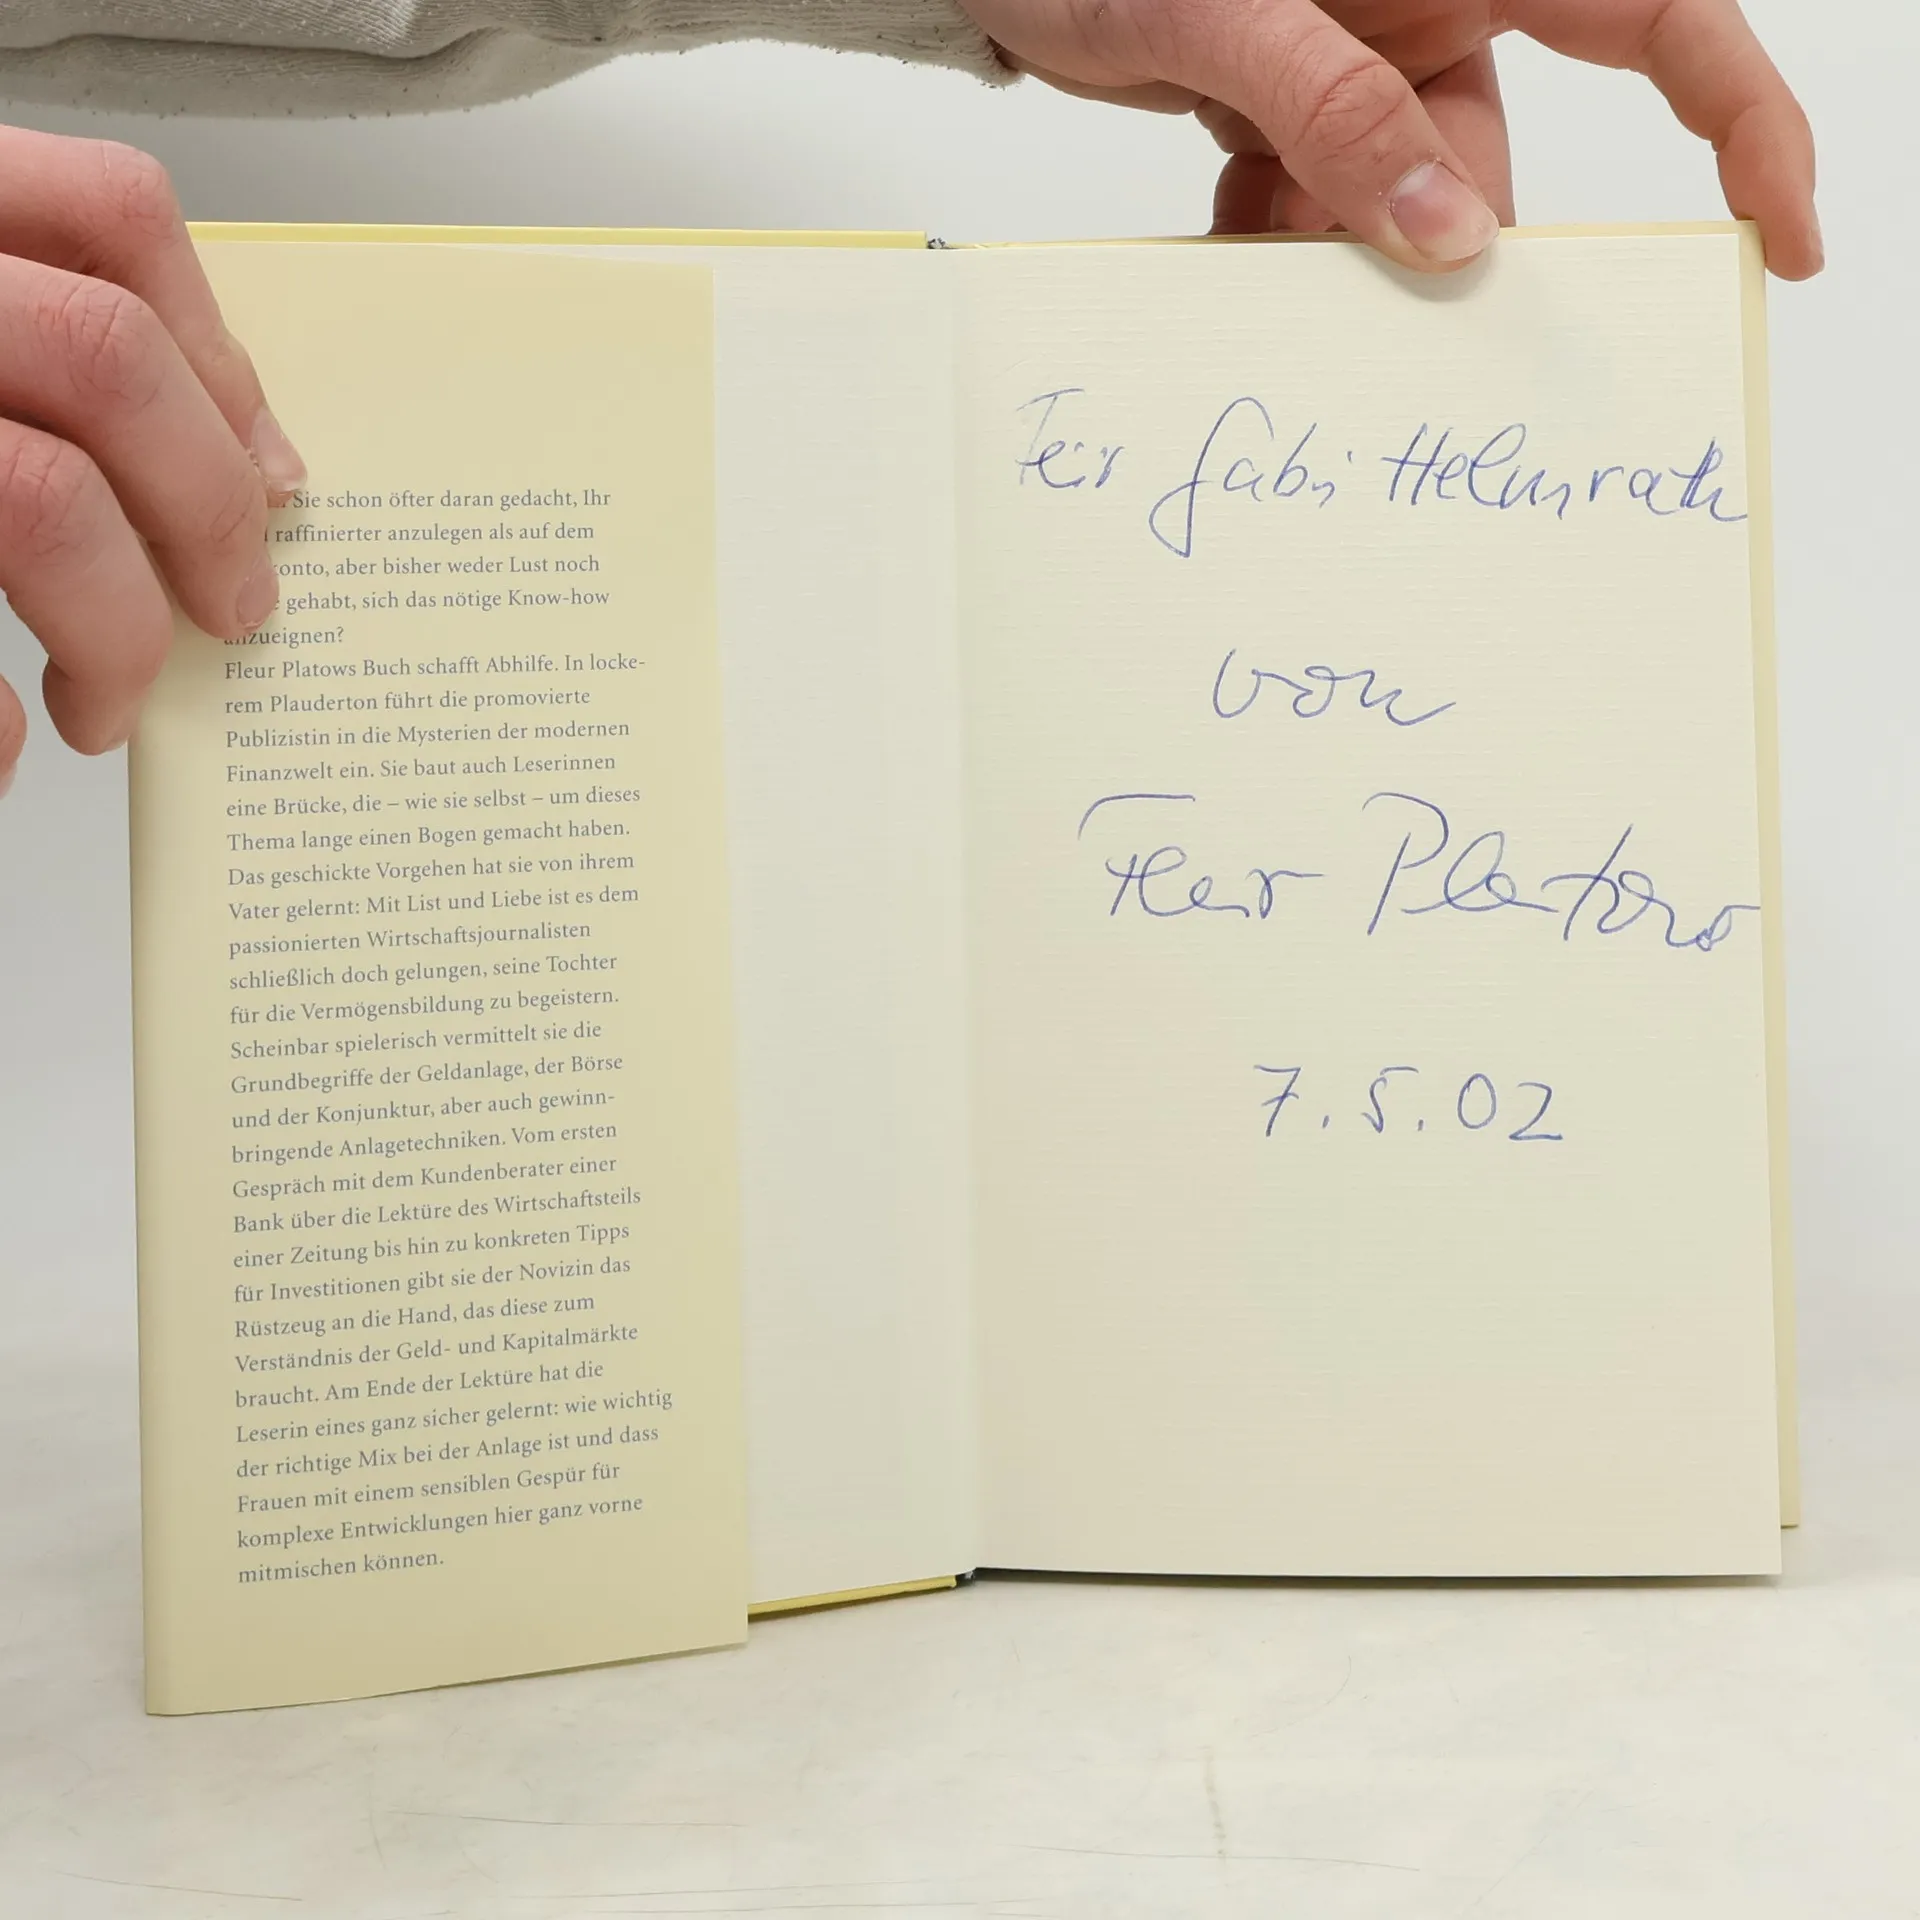 Sie schon öfter daran gedacht, Ihr
raffinierter anzulegen als auf dem
konto, aber bisher weder Lust noch
gehabt, sich das nötige Know-how
anzueignen?
Fleur Platows Buch schafft Abhilfe. In locke-
rem Plauderton führt die promovierte
Publizistin in die Mysterien der modernen
Finanzwelt ein. Sie baut auch Leserinnen
eine Brücke, die – wie sie selbst – um dieses
Thema lange einen Bogen gemacht haben.
Das geschickte Vorgehen hat sie von ihrem
Vater gelernt: Mit List und Liebe ist es dem
passionierten Wirtschaftsjournalisten
schließlich doch gelungen, seine Tochter
für die Vermögensbildung zu begeistern.
Scheinbar spielerisch vermittelt sie die
Grundbegriffe der Geldanlage, der Börse
und der Konjunktur, aber auch gewinn-
bringende Anlagetechniken. Vom ersten
Gespräch mit dem Kundenberater einer
Bank über die Lektüre des Wirtschaftsteils
einer Zeitung bis hin zu konkreten Tipps
für Investitionen gibt sie der Novizin das
Rüstzeug an die Hand, das diese zum
Verständnis der Geld- und Kapitalmärkte
braucht. Am Ende der Lektüre hat die
Leserin eines ganz sicher gelernt: wie wichtig
der richtige Mix bei der Anlage ist und dass
Frauen mit einem sensiblen Gespür für
komplexe Entwicklungen hier ganz vorne
mitmischen können.
Für Gabi Helmrath
von
Fleur Platow
7.5.02